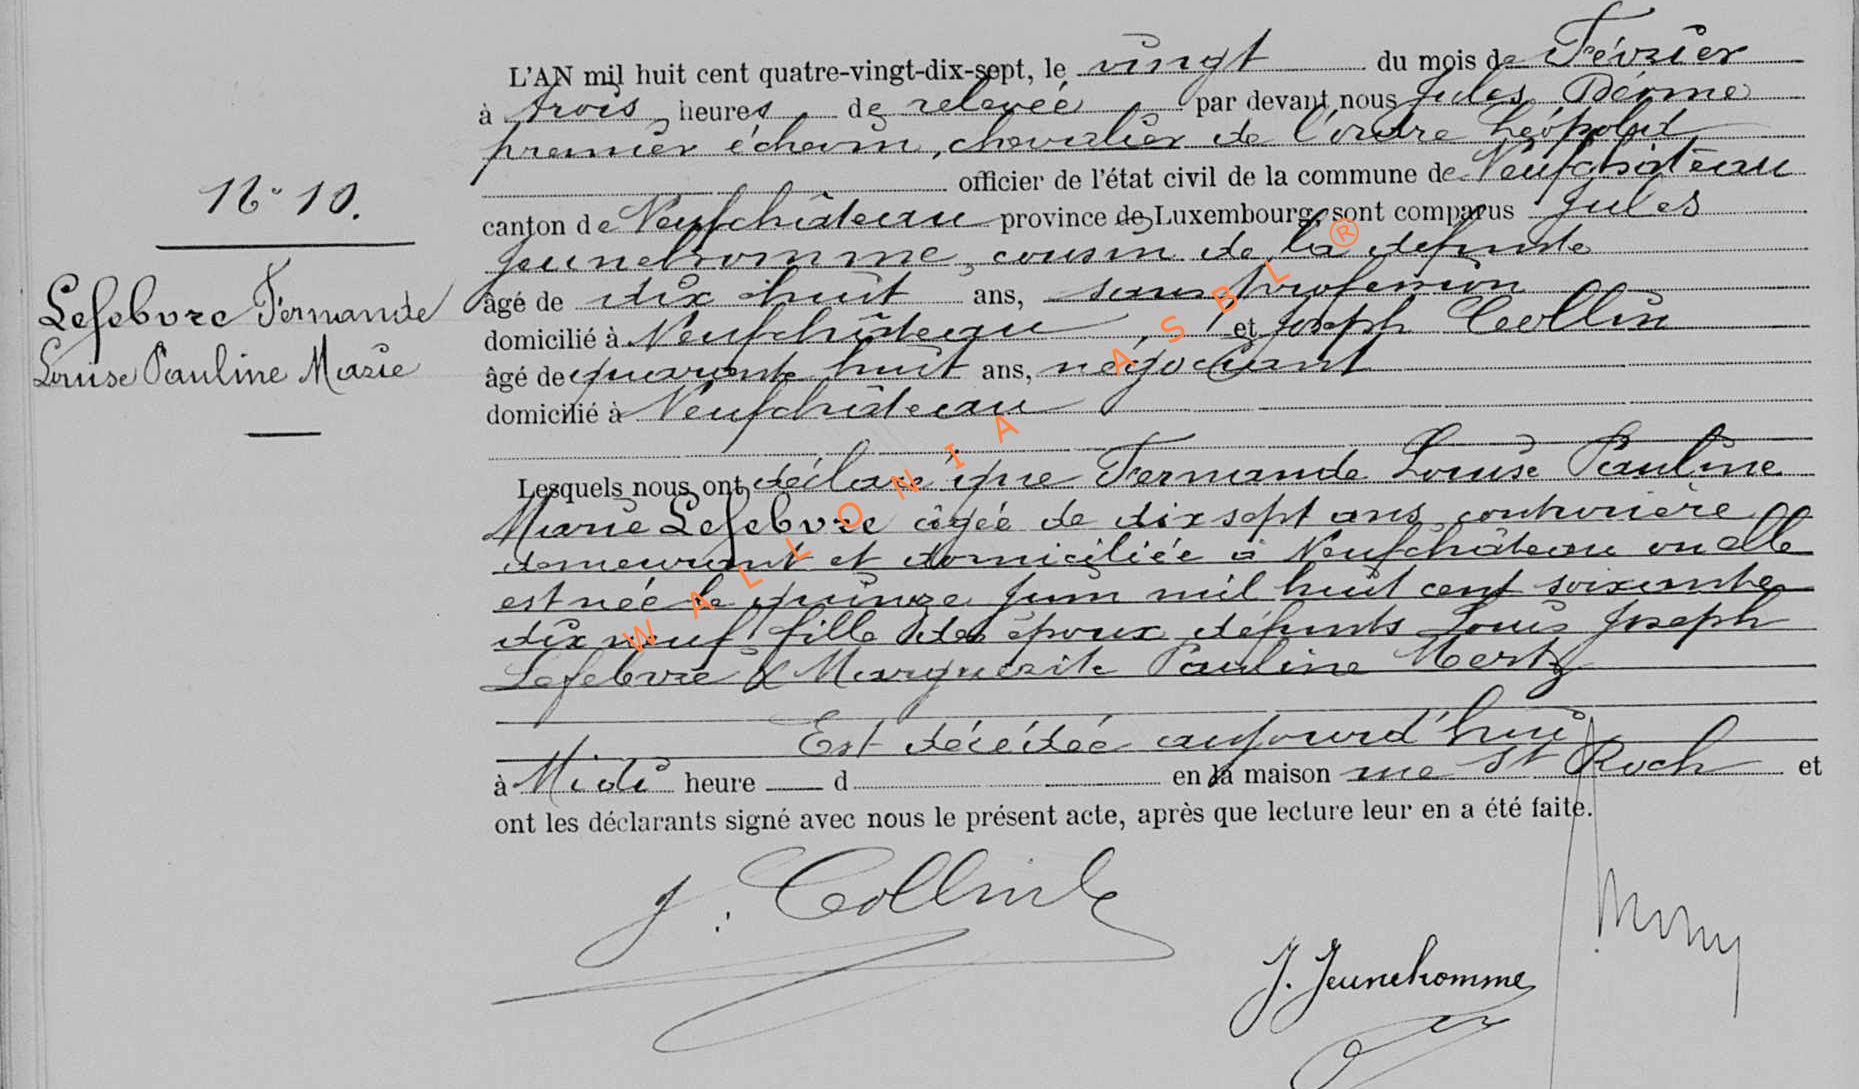 L'AN mil huit cent quatre-vingt-dix-sept, le vingt du mois de Février
à trois heures de relevée par devant nous Jules
premier échevin, chevalier de l'ordre Léopold
officier de l'état civil de la commune de Neufchâteau
N° 10.
canton de Neufchâteau province de Luxembourg, sont comparus Jules
Jeunehomme, cousin de la défunte
Lefebvre Fernande
âgé de dix huit ans, sans profession
domicilié à Neufchâteau et Joseph Collin
Louise Pauline Marie
âgé de quarante huit ans, négociant
domicilié à Neufchâteau
Lesquels nous ont déclaré que Fernande Louise Pauline
Marie Lefebvre âgée de dix sept ans, couturière
demeurant et domiciliée à Neufchâteau où elle
est née le quinze Juin mil huit cent soixante
dix neuf, fille des époux défunts Louis Joseph
Lefebvre & Marguerite Pauline Mertz
Est décédée aujourd'hui
à Midi heure d en la maison rue St Roch et
ont les déclarants signé avec nous le présent acte, après que lecture leur en a été faite.
J. Collin
J. Jeunehomme
WALLONIA ASBL®